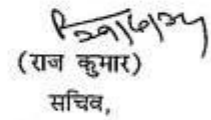 (राज कुमार)
सचिव,